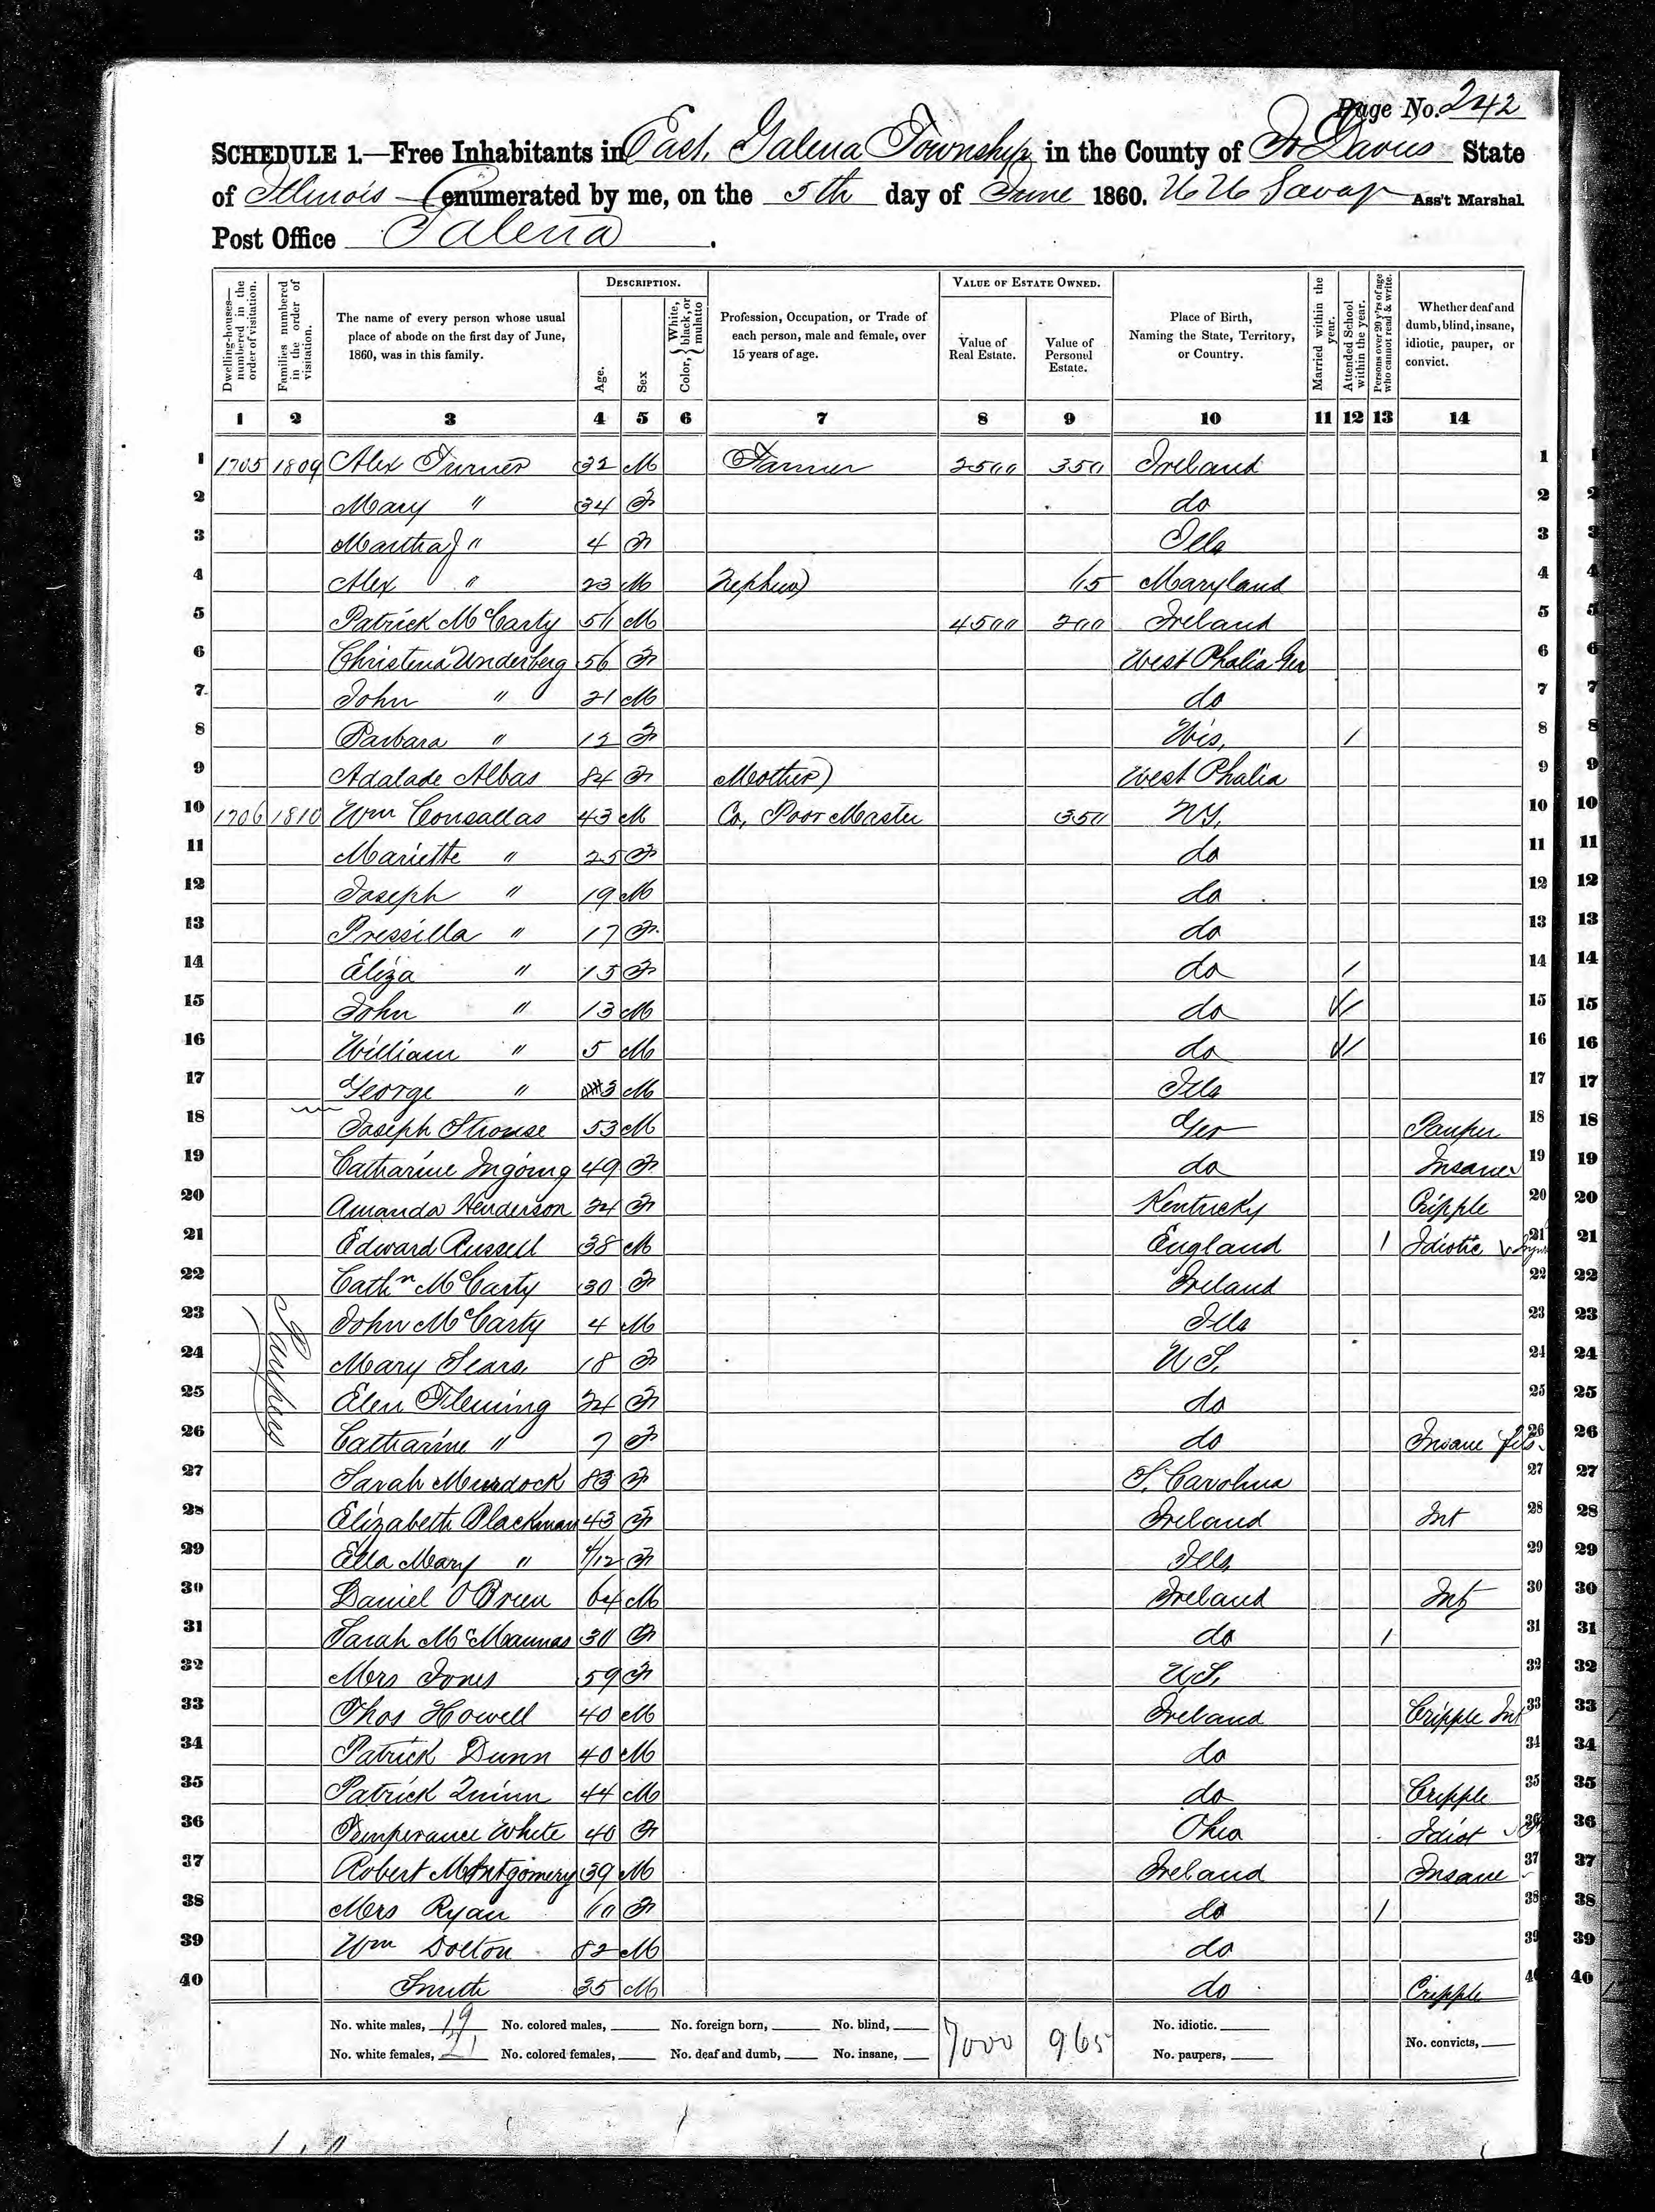 Page No. 242
SCHEDULE 1.—Free Inhabitants in East Galena Township in the County of Jo Daviess State
of Illinois enumerated by me, on the 5th day of June 1860. Ass't Marshal.
Post Office Galena.
Dwelling-houses—numbered in the order of visitation.
Families numbered in the order of visitation.
The name of every person whose usual place of abode on the first day of June, 1860, was in this family.
DESCRIPTION.
Age.
Sex
Color, { White, black, or mulatto
Profession, Occupation, or Trade of each person, male and female, over 15 years of age.
VALUE OF ESTATE OWNED.
Value of Real Estate.
Value of Personal Estate.
Place of Birth, Naming the State, Territory, or Country.
Married within the year.
Attended School within the year.
Persons over 20 y'rs of age who cannot read & write.
Whether deaf and dumb, blind, insane, idiotic, pauper, or convict.
1 2 3 4 5 6 7 8 9 10 11 12 13 14
1 1705 1809 Alex Turner 32 M Farmer 2500 350 Ireland 1
2 Mary " 34 F do 2
3 Martha J " 4 F Ills 3
4 Alex " 23 M Nephew) 115 Maryland 4
5 Patrick McCarty 50 M 4500 200 Ireland 5
6 Christena Underberg 56 F West Phalia Ger 6
7 John " 21 M do 7
8 Barbara " 12 F Wis, / 8
9 Adalade Albas 84 F Mother) West Phalia 9
10 1706 1810 Wm Consallas 43 M Co, Poor Master 350 NY, 10
11 Mariette " 25 F do 11
12 Joseph " 19 M do 12
13 Pressilla " 17 F do 13
14 Eliza " 15 F do / 14
15 John " 13 M do / 15
16 William " 5 M do / 16
17 George " 3 M Ills 17
18 Joseph Strouse 53 M Ger Pauper 18
19 Catharine Ingoing 49 F do Insane 19
20 Amanda Henderson 24 F Kentucky Cripple 20
21 Edward Russell 38 M England 1 Idiotic 21
22 Cathn McCarty 30 F Ireland 22
23 John McCarty 4 M Ills 23
24 Mary Sears, 18 F U S. 24
25 Elen Fleming 24 F do 25
Paupers
26 Catharine " 7 F do Insane 26
27 Sarah Murdock 83 F S. Carolina 27
28 Elizabeth Blackman 43 F Ireland Int 28
29 Ella Mary " 4/12 F Ills, 29
30 Daniel O Brien 64 M Ireland Int 30
31 Sarah McMannas 30 F do 1 31
32 Mrs Jones 59 F U.S, 32
33 Thos Howell 40 M Ireland Cripple Int 33
34 Patrick Dunn 40 M do 34
35 Patrick Quinn 44 M do Cripple 35
36 Temperance White 40 F Ohio Idiot 36
37 Robert Montgomery 39 M Ireland Insane 37
38 Mrs Ryan 60 F do 1 38
39 Wm Dolton 82 M do 39
40 Smith 35 M do Cripple 40
No. white males, 19 No. colored males, No. foreign born, No. blind, 7000 965 No. idiotic.
No. white females, 21 No. colored females, No. deaf and dumb, No. insane, No. paupers, No. convicts,